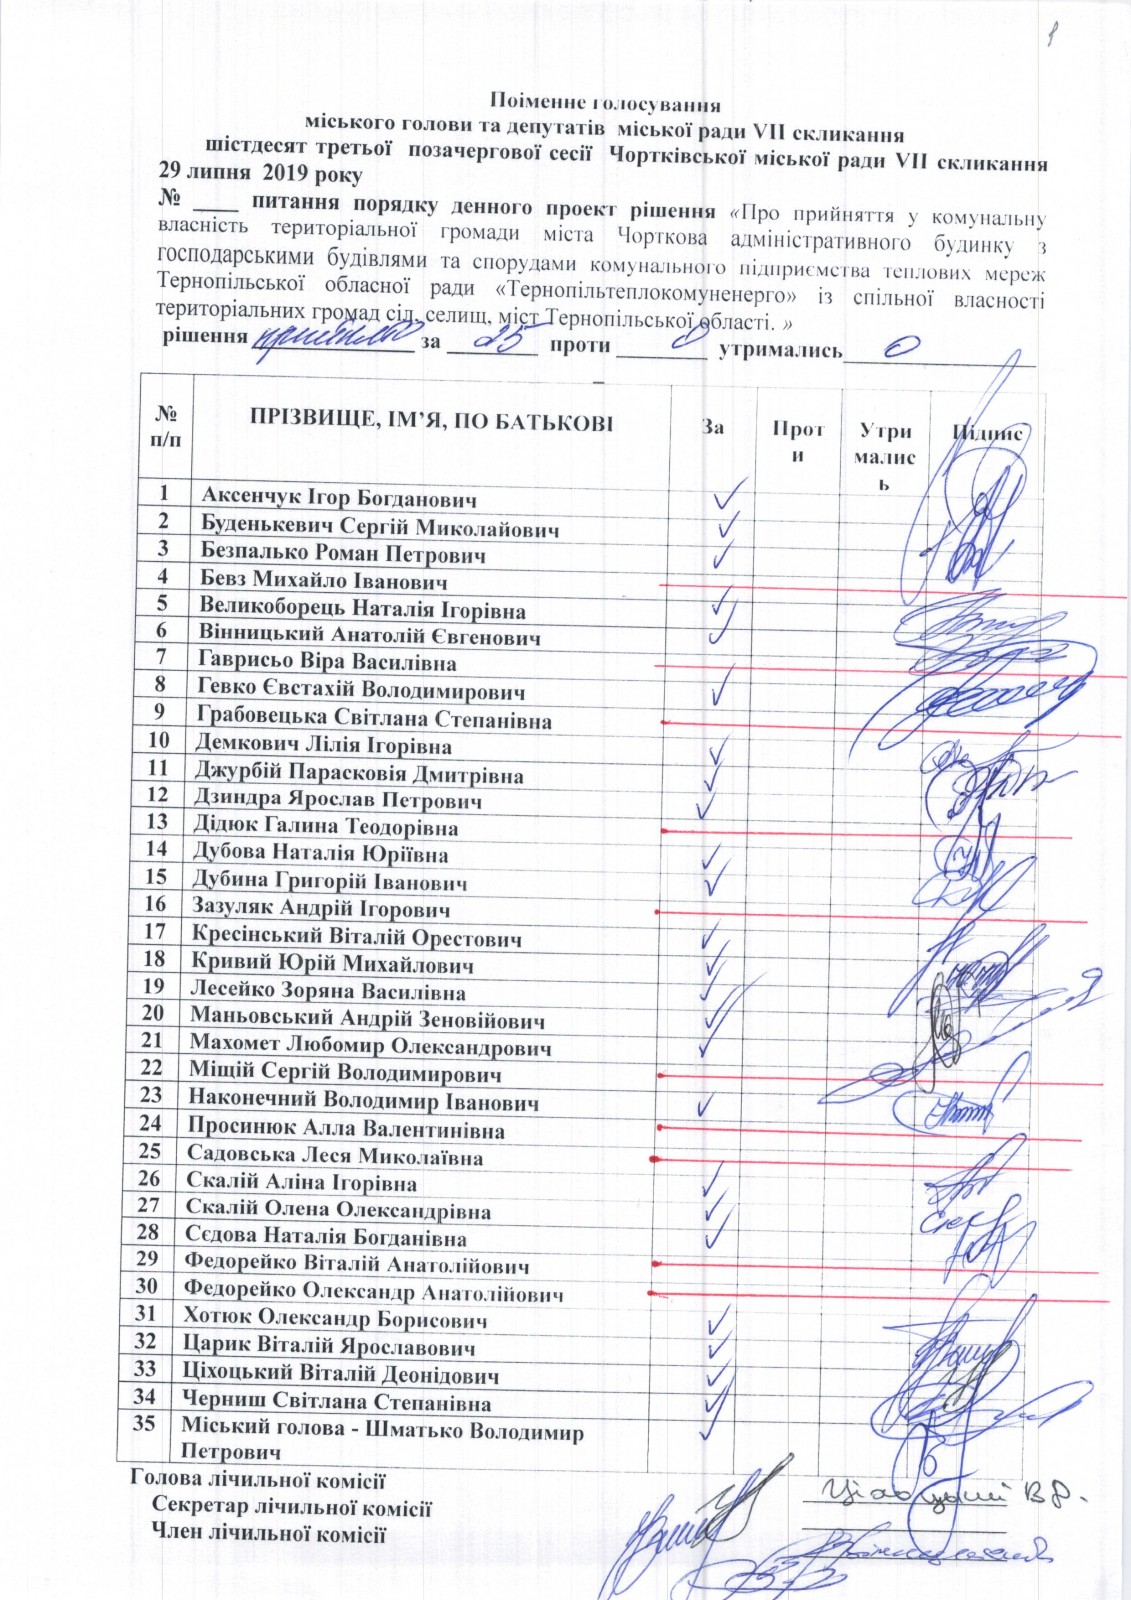 Поіменне голосування
міського голови та депутатів міської ради VII скликання
шістдесят третьої позачергової сесії Чортківської міської ради VII скликання
29 липня 2019 року
№ ____ питання порядку денного проект рішення «Про прийняття у комунальну
власність територіальної громади міста Чорткова адміністративного будинку з
господарськими будівлями та спорудами комунального підприємства теплових мереж
Тернопільської обласної ради «Тернопільтеплокомуненерго» із спільної власності
територіальних громад сіл, селищ, міст Тернопільської області. »
рішення прийнято за 25 проти 0 утримались 0
№ п/п ПРІЗВИЩЕ, ІМ’Я, ПО БАТЬКОВІ За Проти Утримались Підпис
1 Аксенчук Ігор Богданович
2 Буденькевич Сергій Миколайович
3 Безпалько Роман Петрович
4 Бевз Михайло Іванович
5 Великоборець Наталія Ігорівна
6 Вінницький Анатолій Євгенович
7 Гаврисьо Віра Василівна
8 Гевко Євстахій Володимирович
9 Грабовецька Світлана Степанівна
10 Демкович Лілія Ігорівна
11 Джурбій Парасковія Дмитрівна
12 Дзиндра Ярослав Петрович
13 Дідюк Галина Теодорівна
14 Дубова Наталія Юріївна
15 Дубина Григорій Іванович
16 Зазуляк Андрій Ігорович
17 Кресінський Віталій Орестович
18 Кривий Юрій Михайлович
19 Лесейко Зоряна Василівна
20 Маньовський Андрій Зеновійович
21 Махомет Любомир Олександрович
22 Міщій Сергій Володимирович
23 Наконечний Володимир Іванович
24 Просинюк Алла Валентинівна
25 Садовська Леся Миколаївна
26 Скалій Аліна Ігорівна
27 Скалій Олена Олександрівна
28 Сєдова Наталія Богданівна
29 Федорейко Віталій Анатолійович
30 Федорейко Олександр Анатолійович
31 Хотюк Олександр Борисович
32 Царик Віталій Ярославович
33 Ціхоцький Віталій Деонідович
34 Черниш Світлана Степанівна
35 Міський голова - Шматько Володимир
Петрович
Голова лічильної комісії
Секретар лічильної комісії
Член лічильної комісії